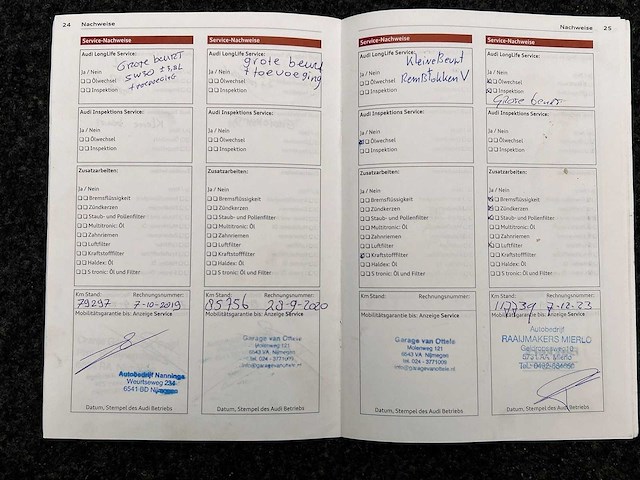 24 Nachweise
Service-Nachweise
Audi LongLife Service:
Grote beurt
5W30 ± 3,8L
+ toevoeging
Ja / Nein
Ölwechsel
Inspektion
Audi Inspektions Service:
Ja / Nein
Ölwechsel
Inspektion
Zusatzarbeiten:
Ja / Nein
Bremsflüssigkeit
Zündkerzen
Staub- und Pollenfilter
Multitronic: Öl
Zahnriemen
Luftfilter
Kraftstofffilter
Haldex: Öl
S tronic: Öl und Filter
Km Stand: Rechnungsnummer:
79297 7-10-2019
Mobilitätsgarantie bis: Anzeige Service
Autobedrijf Nanninga
Weurtseweg 234
6541 BD Nijmegen
Datum, Stempel des Audi Betriebs
Service-Nachweise
Audi LongLife Service:
grote beurt
+ toevoeging
Ja / Nein
Ölwechsel
Inspektion
Audi Inspektions Service:
Ja / Nein
Ölwechsel
Inspektion
Zusatzarbeiten:
Ja / Nein
Bremsflüssigkeit
Zündkerzen
Staub- und Pollenfilter
Multitronic: Öl
Zahnriemen
Luftfilter
Kraftstofffilter
Haldex: Öl
S tronic: Öl und Filter
Km Stand: Rechnungsnummer:
85756 28-9-2020
Mobilitätsgarantie bis: Anzeige Service
Garage van Ottele
Molenweg 121
6543 VA Nijmegen
tel. 024 - 3771009
info@garagevanottele.nl
Datum, Stempel des Audi Betriebs
Nachweise 25
Service-Nachweise
Audi LongLife Service:
Kleine Beurt
Remblokken V
Ja / Nein
Ölwechsel
Inspektion
Audi Inspektions Service:
Ja / Nein
Ölwechsel
Inspektion
Zusatzarbeiten:
Ja / Nein
Bremsflüssigkeit
Zündkerzen
Staub- und Pollenfilter
Multitronic: Öl
Zahnriemen
Luftfilter
Kraftstofffilter
Haldex: Öl
S tronic: Öl und Filter
Km Stand: Rechnungsnummer:
Mobilitätsgarantie bis: Anzeige Service
Garage van Ottele
Molenweg 121
6543 VA Nijmegen
tel. 024 - 3771009
info@garagevanottele.nl
Datum, Stempel des Audi Betriebs
Service-Nachweise
Audi LongLife Service:
Ja / Nein
Ölwechsel
Inspektion
Grote beurt
Audi Inspektions Service:
Ja / Nein
Ölwechsel
Inspektion
Zusatzarbeiten:
Ja / Nein
Bremsflüssigkeit
Zündkerzen
Staub- und Pollenfilter
Multitronic: Öl
Zahnriemen
Luftfilter
Kraftstofffilter
Haldex: Öl
S tronic: Öl und Filter
Km Stand: Rechnungsnummer:
117739 7-12-23
Mobilitätsgarantie bis: Anzeige Service
Autobedrijf
RAAIJMAKERS MIERLO
Mierlo
Datum, Stempel des Audi Betriebs